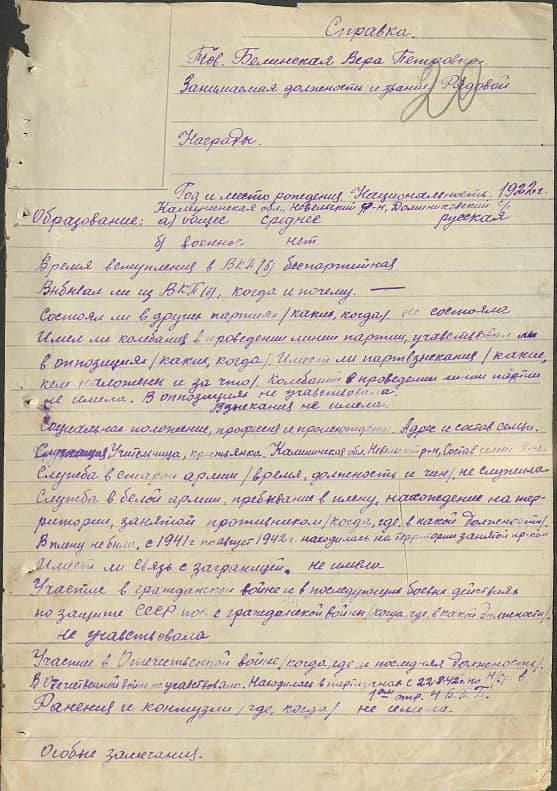 Справка.
Тов. Белинская Вера Петровна.
Занимаемая должность и звание Рядовой
20
Награды.
Год и место рождения. Национальность. 1922 г.
Калининская обл. Невельский р-н, Доминиковский с/с
Образование: а) общее среднее русская
б) военное нет
Время вступления в ВКП(б) беспартийная
Выбывал ли из ВКП(б), когда и почему. —
Состоял ли в других партиях /каких, когда/ не состояла
Имел ли колебания в проведении линии партии, учавствовал ли
в оппозициях /каких, когда/. Имеет ли партвзыскания /какие,
кем наложены и за что/. Колебаний в проведении линии партии
не имела. В оппозициях не учавствовала.
Взыскания не имела.
Социальное положение, профессия и происхождение. Адрес и состав семьи.
Служащая, Учительница, крестьянка. Калининская обл. Невельский р-н, Состав семьи
Служба в старой армии /время, должность и чин/, не служила
Служба в белой армии, пребывание в плену, нахождение на тер-
ритории, занятой противником /когда, где, в какой должности/
В плену не была, с 1941 г. по август 1942 г. находилась на территории занятой пр-ком
Имеет ли связь с заграницей. не имела
Участие в гражданской войне и в последующих боевых действиях
по защите СССР после гражданской войны /когда, где, в какой должности/
не учавствовала
Участие в Отечественной войне /когда, где и последняя должность/.
В Отечественной войне не учавствовала. Находилась в партизанах с 22.8.42 г. по в
1ом отр. 4 Б.П.П.
Ранения и контузии /где, когда/ не имела.
Особые замечания.